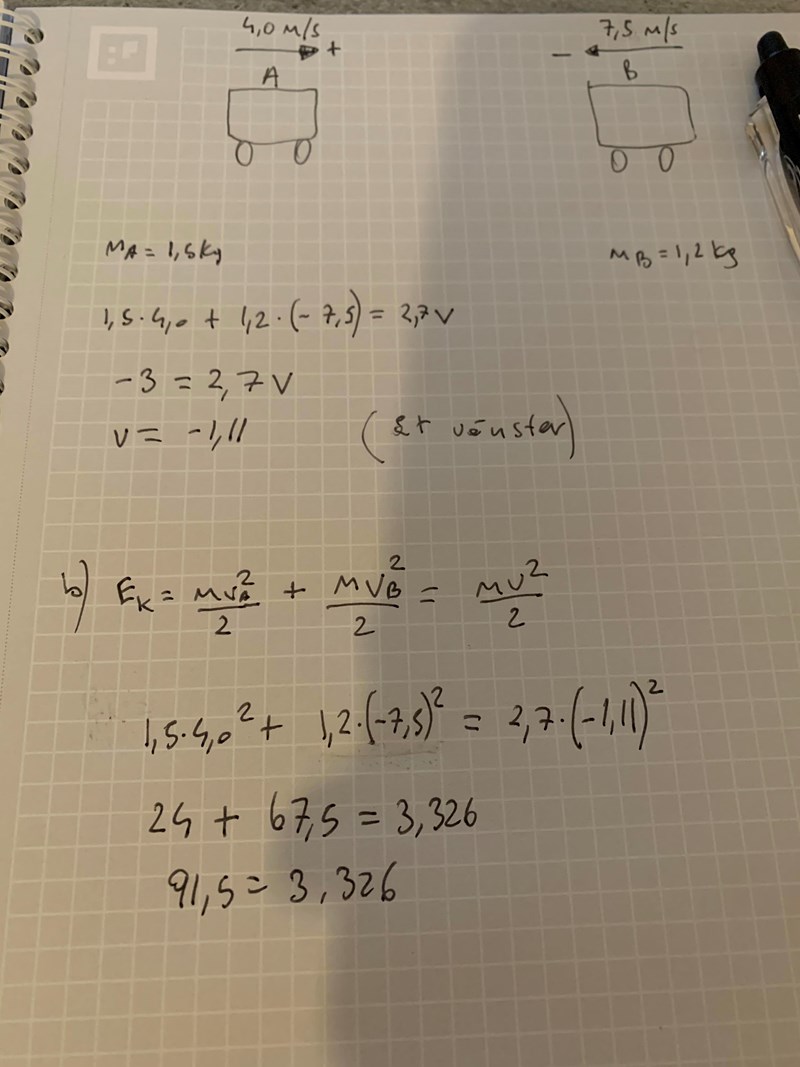 4,0 m/s 7,5 m/s
+ −
A B
mA = 1,5 kg mB = 1,2 kg
1,5·4,0 + 1,2·(−7,5) = 2,7 v
−3 = 2,7 v
v = −1,11 (åt vänster)
b) EK = mvA²/2 + mvB²/2 = mv²/2
1,5·4,0² + 1,2·(−7,5)² = 2,7·(−1,11)²
24 + 67,5 = 3,326
91,5 = 3,326